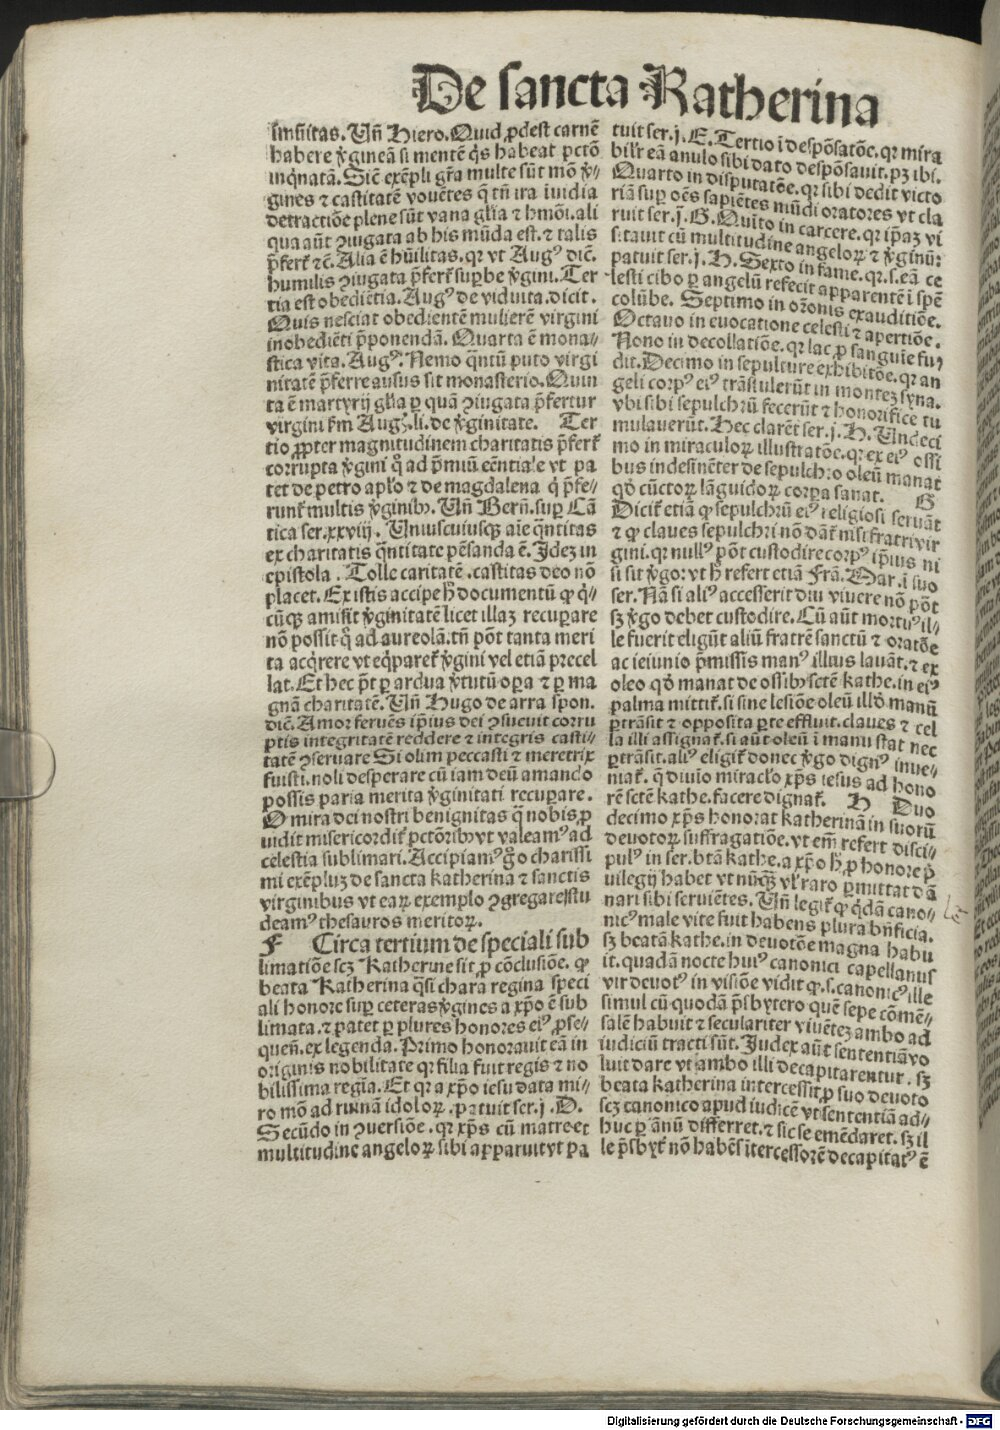 De sancta Katherina
firmitas. Uñ Hiero. Quid ꝓdest carnē
habere v̓gineā si mentē q̓s habeat pctō
inq̓natā. Sic̄ exēpli gr̄a multe sūt mō v̓-
gines ⁊ castitatē vouētes q̄ tn̄ ira inuidia
detractiōe plene sūt vana gl̓ia ⁊ hmōi. ali
qua aūt ꝯiugata ab his mūda est. ⁊ talis
p̄ferť ⁊c̄. Alia ē hūilitas. qꝛ vt Augꝰ dic̄.
humilis ꝯiugata p̄ferť suꝑbe v̓gini. Ter
tia est obediētia. Augꝰ de viduita. dicit.
Quis nesciat obedientē mulierē virgini
inobediēti p̄ponendā. Quarta ē mona-
stica vita. Augꝰ. Nemo qn̄tū puto virgi
nitatē p̄ferre ausus sit monasterio. Quin
ta ē martyrij gl̓ia ꝑ quā ꝯiugata p̄fertur
virgini fm Augꝰ. li. de v̓ginitate. Ter
tio ꝓpter magnitudinem charitatis p̄ferť
corrupta v̓gini q̊ ad p̄miū eēntiale vt pa
tet de petro apl̓o ⁊ de magdalena q̓ p̄fe-
runť multis v̓ginibꝰ. Uñ Bern̄. suꝑ Cā
tica ser. xxviij. Uniuscuiusqꝫ aīe qn̄titas
ex charitatis qn̄titate pēsanda ē. Idez in
epistola. Tolle caritatē. castitas deo nō
placet. Ex istis accipe h̓ documentū ꝙ q̓-
cūqꝫ amisit v̓ginitatē licet illaz recuꝑare
nō possit q̊ ad aureolā. tn̄ pōt tanta meri
ta acq̓rere vt eq̓pareť v̓gini vel etiā precel
lat. Et hec pn̄t ꝑ ardua v̓tutū oꝑa ⁊ ꝑ ma
gnā charitatē. Uñ Hugo de arra spon.
dic̄. Amor feruēs ip̄ius dei ꝯsueuit corru
ptis integritatē reddere ⁊ integris casti-
tatē ꝯseruare Si olim peccasti ⁊ meretrix
fuisti. noli desperare cū iam deū amando
possis paria merita v̓ginitati recuꝑare.
O mira dei nostri benignitas q̄ nobis ꝓ
uidit misericordiť pctōribꝰ vt valeamꝰ ad
celestia sublimari. Accipiamꝰ g̊ charissi
mi exēpluz de sancta katherina ⁊ sanctis
virginibus vt eaꝝ exemplo ꝯgregare stu
deamꝰ thesauros meritoꝝ.
F Circa tertium de speciali sub
limatiōe scz Katherine sit ꝓ cōclusiōe. ꝙ
beata Katherina q̄si chara regina speci
ali honore suꝑ ceteras v̓gines a xp̄o ē sub
limata. ⁊ patet ꝑ plures honores eiꝰ ꝓse-
quen̄. ex legenda. Primo honorauit eā in
originis nobilitate qꝛ filia fuit regis ⁊ no
bilissima regia. Et qꝛ a xp̄o iesu data mi-
ro mō ad ruinā idoloꝝ. patuit ser. j. D.
Secūdo in ꝯuersiōe. qꝛ xp̄s cū matre et
multitudine angeloꝝ sibi apparuit vt pa
tuit ser. j. E. Tertio ī despōsatōe. qꝛ mira
bilr̓ eā anulo sibi dato despōsauit. pꝫ ibi.
Quarto in disputatōe. qꝛ sibi dedit victo
riā suꝑ oēs sapiētes mūdi oratores vt cla
ruit ser. j. G. Quīto in carcere. qꝛ ip̄az vi
sitauit cū multitudine angeloꝝ ⁊ v̓ginū:
patuit ser. j. H. Sexto in fame. qꝛ. s. eā ce
lesti cibo ꝑ angelū refecit apparentē ī spē
colūbe. Septimo in or̄onis exauditiōe.
Octauo in euocatione celesti ⁊ apertiōe.
Nono in decollatiōe. qꝛ lac ꝓ sanguīe fu
dit. Decimo in sepulture exhibitōe. qꝛ an
geli corpꝰ eiꝰ trāstulerūt in montez syna.
vbi sibi sepulchrū fecerūt ⁊ honorifice tu
mulauerūt. Hec clarēt ser. j. H. Undeci
mo in miraculoꝝ illustratōe. qꝛ ex eiꝰ ossi
bus indesinēter de sepulchro oleū manat
qd̓ cūctoꝝ lāguidoꝝ corꝑa sanat. G
Diciť etiā ꝙ sepulchrū eiꝰ religiosi seruāt
⁊ ꝙ claues sepulchri nō dāť nisi fratri vir
gini. qꝛ nullꝰ pōt custodire corpꝰ ip̄ius ni
si sit v̓go: vt h̓ refert etiā Frā. Mar. ī suo
ser. Nā si aliꝰ accesserit diu viuere nō pōt
sꝫ v̓go debet custodire. Cū aūt mortuꝰ il-
le fuerit eligūt aliū fratrē sanctū ⁊ oratōe
ac ieiunio p̄missis manꝰ illius lauāt. ⁊ ex
oleo qd̓ manat de ossibꝰ sctē kathe. in eiꝰ
palma mittiť. si sine lesiōe oleū illd̓ manū
ꝑtrāsit ⁊ opposita ꝑte effluit. claues ⁊ cel
la illi assignať. si aūt oleū ī manu stat nec
ꝑtrāsit. aliꝰ eligiť donec v̓go dignꝰ inue-
niať. q̄ diuio miracl̓o xp̄s iesus ad hono
rē sctē kathe. facere dignať. H Duo
decimo xp̄s honorat katherinā in suorū
deuotoꝝ suffragatiōe. vt em̄ refert disci-
pulꝰ in ser. btā kathe. a xp̄o h̓ ꝓ honore p̓
uilegij habet vt nūqꝫ vl̓ raro ꝑmittat dā
nari sibi seruiētes. Uñ legiť ꝙ qd̓ā cano-
nicꝰ male vite fuit habens plura bn̄ficia.
sꝫ beatā kathe. in deuotōe magna habu
it. quadā nocte huiꝰ canonici capellanus
vir deuotꝰ in visiōe vidit ꝙ. s. canonicꝰ ille
simul cū quodā p̄sbytero quē sepe cōmē-
salē habuit ⁊ seculariter viuētez ambo ad
iudiciū tracti sūt. Judex aūt sententiā vo
luit dare vt ambo illi decapitarentur. sꝫ
beata katherina intercessit ꝓ suo deuoto
scꝫ canonico apud iudicē vt sententiā ad-
huc ꝑ ānū differret. ⁊ sic se emēdaret. sꝫ il
le p̄sbyť nō habēs ītercessorē decapitatꝰ ē
Digitalisierung gefördert durch die Deutsche Forschungsgemeinschaft - DFG